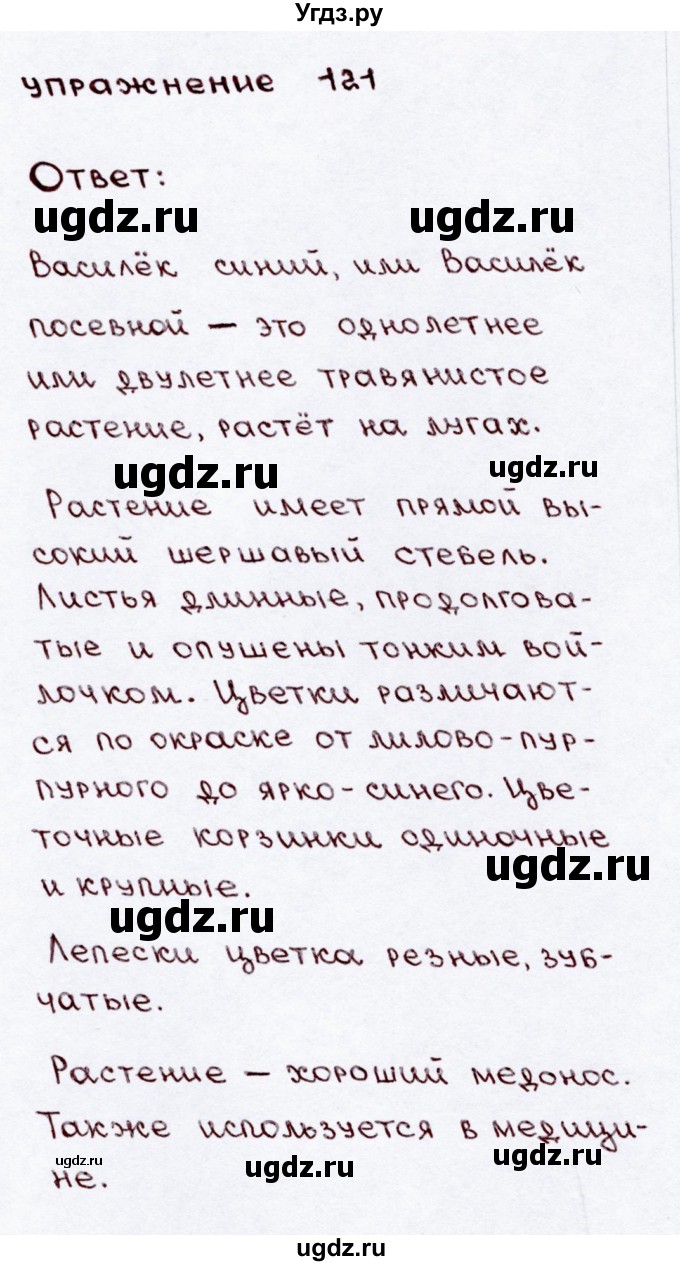 Угдз.ру
упражнение 121
Ответ:
ugdz.ru ugdz.ru
Василёк синий, или Василёк
посевной — это однолетнее
или двулетнее травянистое
растение, растёт на лугах.
ugdz.ru ugdz.ru
Растение имеет прямой вы-
сокий шершавый стебель.
Листья длинные, продолгова-
тые и опушены тонким вой-
лочком. Цветки различают-
ся по окраске от лилово-пур-
пурного до ярко-синего. Цве-
точные корзинки одиночные
ugdz.ru
и крупные.
ugdz.ru
Лепески цветка резные, зуб-
чатые.
Растение — хороший медонос.
Также используется в медици-
ugdz.ru ugdz.ru ugdz.ru
не.
ugdz.ru